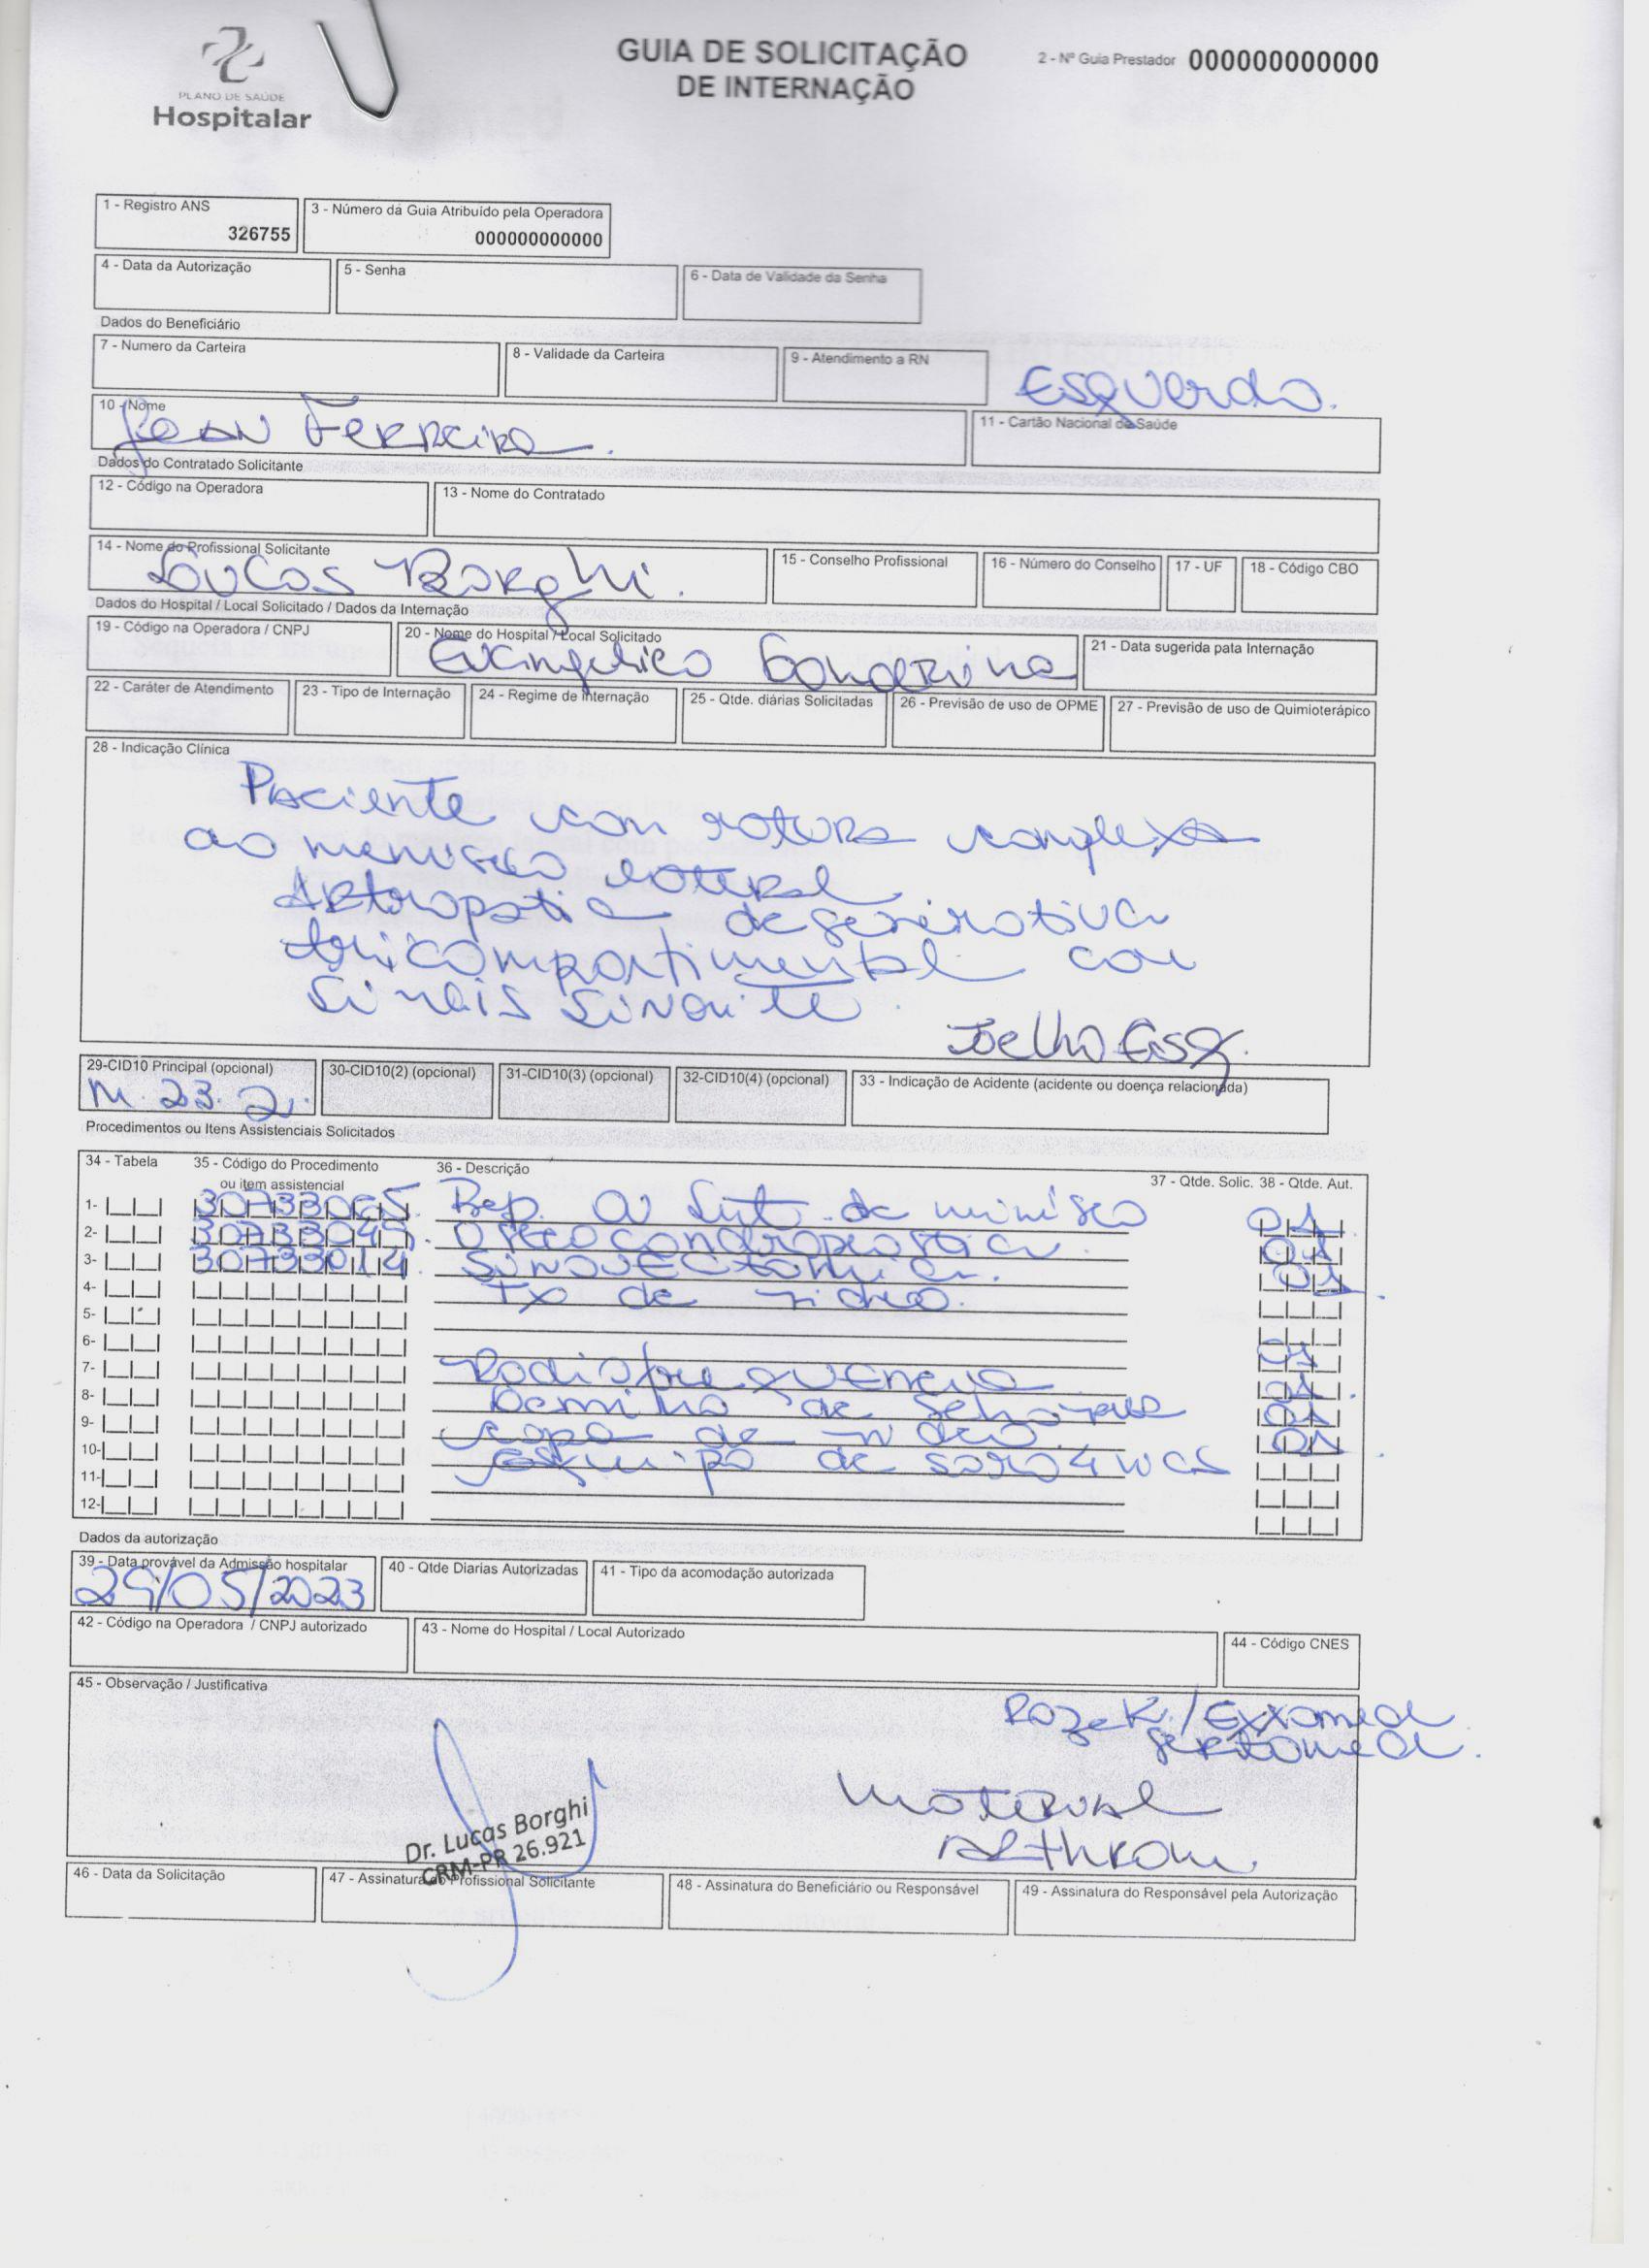 PLANO DE SAÚDE
Hospitalar
GUIA DE SOLICITAÇÃO
DE INTERNAÇÃO
2 - Nº Guia Prestador 000000000000
1 - Registro ANS
326755
3 - Número da Guia Atribuído pela Operadora
000000000000
4 - Data da Autorização
5 - Senha
6 - Data de Validade da Senha
Dados do Beneficiário
7 - Numero da Carteira
8 - Validade da Carteira
9 - Atendimento a RN
Esquerdo.
10 - Nome
Jean Ferreira.
11 - Cartão Nacional de Saúde
Dados do Contratado Solicitante
12 - Código na Operadora
13 - Nome do Contratado
14 - Nome do Profissional Solicitante
Lucas Borghi.
15 - Conselho Profissional
16 - Número do Conselho
17 - UF
18 - Código CBO
Dados do Hospital / Local Solicitado / Dados da Internação
19 - Código na Operadora / CNPJ
20 - Nome do Hospital / Local Solicitado
Evangelico Londrina
21 - Data sugerida pata Internação
22 - Caráter de Atendimento
23 - Tipo de Internação
24 - Regime de Internação
25 - Qtde. diárias Solicitadas
26 - Previsão de uso de OPME
27 - Previsão de uso de Quimioterápico
28 - Indicação Clínica
Paciente com rotura complexa
ao menisco lateral
Artropatia degenerativa
tricompartimental com
sinais sinovite.
Joelho Esq.
29-CID10 Principal (opcional)
M. 23. 2.
30-CID10(2) (opcional)
31-CID10(3) (opcional)
32-CID10(4) (opcional)
33 - Indicação de Acidente (acidente ou doença relacionada)
Procedimentos ou Itens Assistenciais Solicitados
34 - Tabela
35 - Código do Procedimento
ou item assistencial
36 - Descrição
37 - Qtde. Solic. 38 - Qtde. Aut.
1- 30733065. Rep. ou Sut. de menisco 01
2- 30733049. Osteocondroplastia. 01
3- 30733014. Sinovectomia. 01.
4- Tx de video.
5-
6-
7- Radiofrequencia 01
8- Lamina de Schaver 01.
9- capa de video. 01
10- Equipo de soro 4 vias 01.
11-
12-
Dados da autorização
39 - Data provável da Admissão hospitalar
29/05/2023
40 - Qtde Diarias Autorizadas
41 - Tipo da acomodação autorizada
42 - Código na Operadora / CNPJ autorizado
43 - Nome do Hospital / Local Autorizado
44 - Código CNES
45 - Observação / Justificativa
Rozek / Exxomed
Material
Arthrom.
Dr. Lucas Borghi
CRM-PR 26.921
46 - Data da Solicitação
47 - Assinatura do Profissional Solicitante
48 - Assinatura do Beneficiário ou Responsável
49 - Assinatura do Responsável pela Autorização